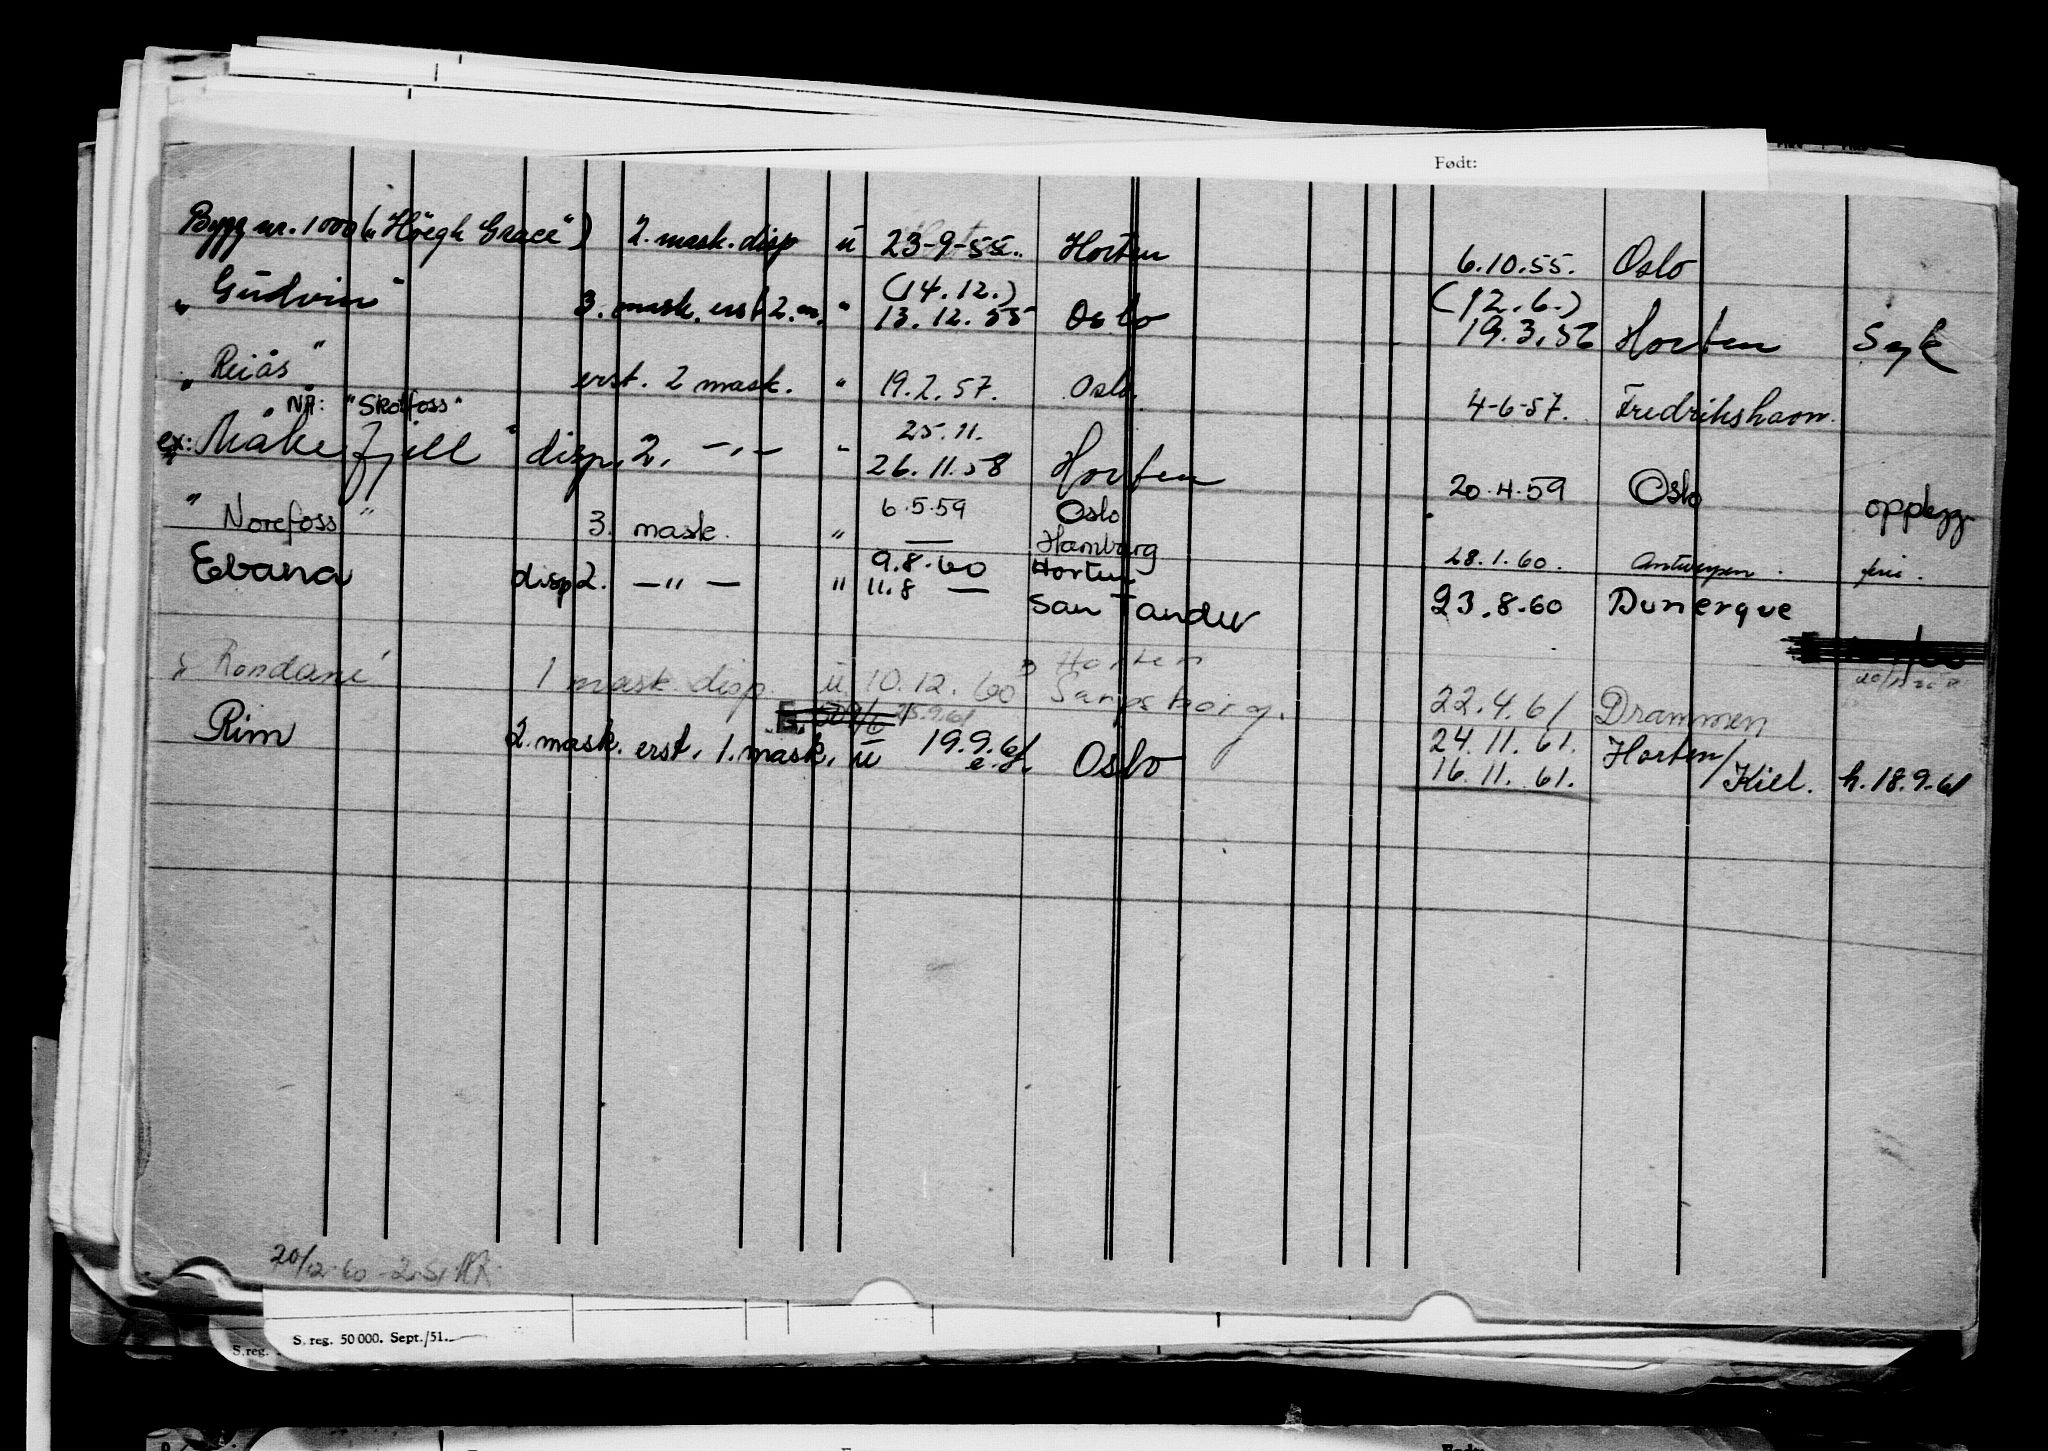 Født:
Bygg nr. 1000 („Höegh Grace") 2. mask. disp u 23-9-55. Horten 6.10.55. Oslo
(14.12.) (12.6.)
„Gudvin" 3. mask. erst 2. m. " 13.12.55 Oslo 19.3.56 Horten Syk
„Reiås" erst. 2 mask. " 19.2.57. Oslo. 4-6-57. Fredrikshavn.
NÅ: "Skotfoss"
25.11.
ex: Måkefjell" disp. 2. -"- " 26.11.58 Horten 20.4.59 Oslo opplegg
6.5.59 Oslo
"Norefoss" 3. mask. " — Hamburg 28.1.60. Antwerpen. feri.
9.8.60 Horten
Ebana disp 2. -"- " 11.8 — San Tander 23.8.60 Dunerque
Horten
"Rondane" 1 mask. disp. u. 10.12.60 Sarpsborg. 22.4.61 Drammen
25.9.61 24.11.61. Horten/
Rim 2. mask. erst. 1. mask. u 19.9.61 e.f. Oslo 16.11.61. /Kiel. h. 18.9.61
20/12-60
S. reg. 50 000. Sept./51.
S. reg.
Født: